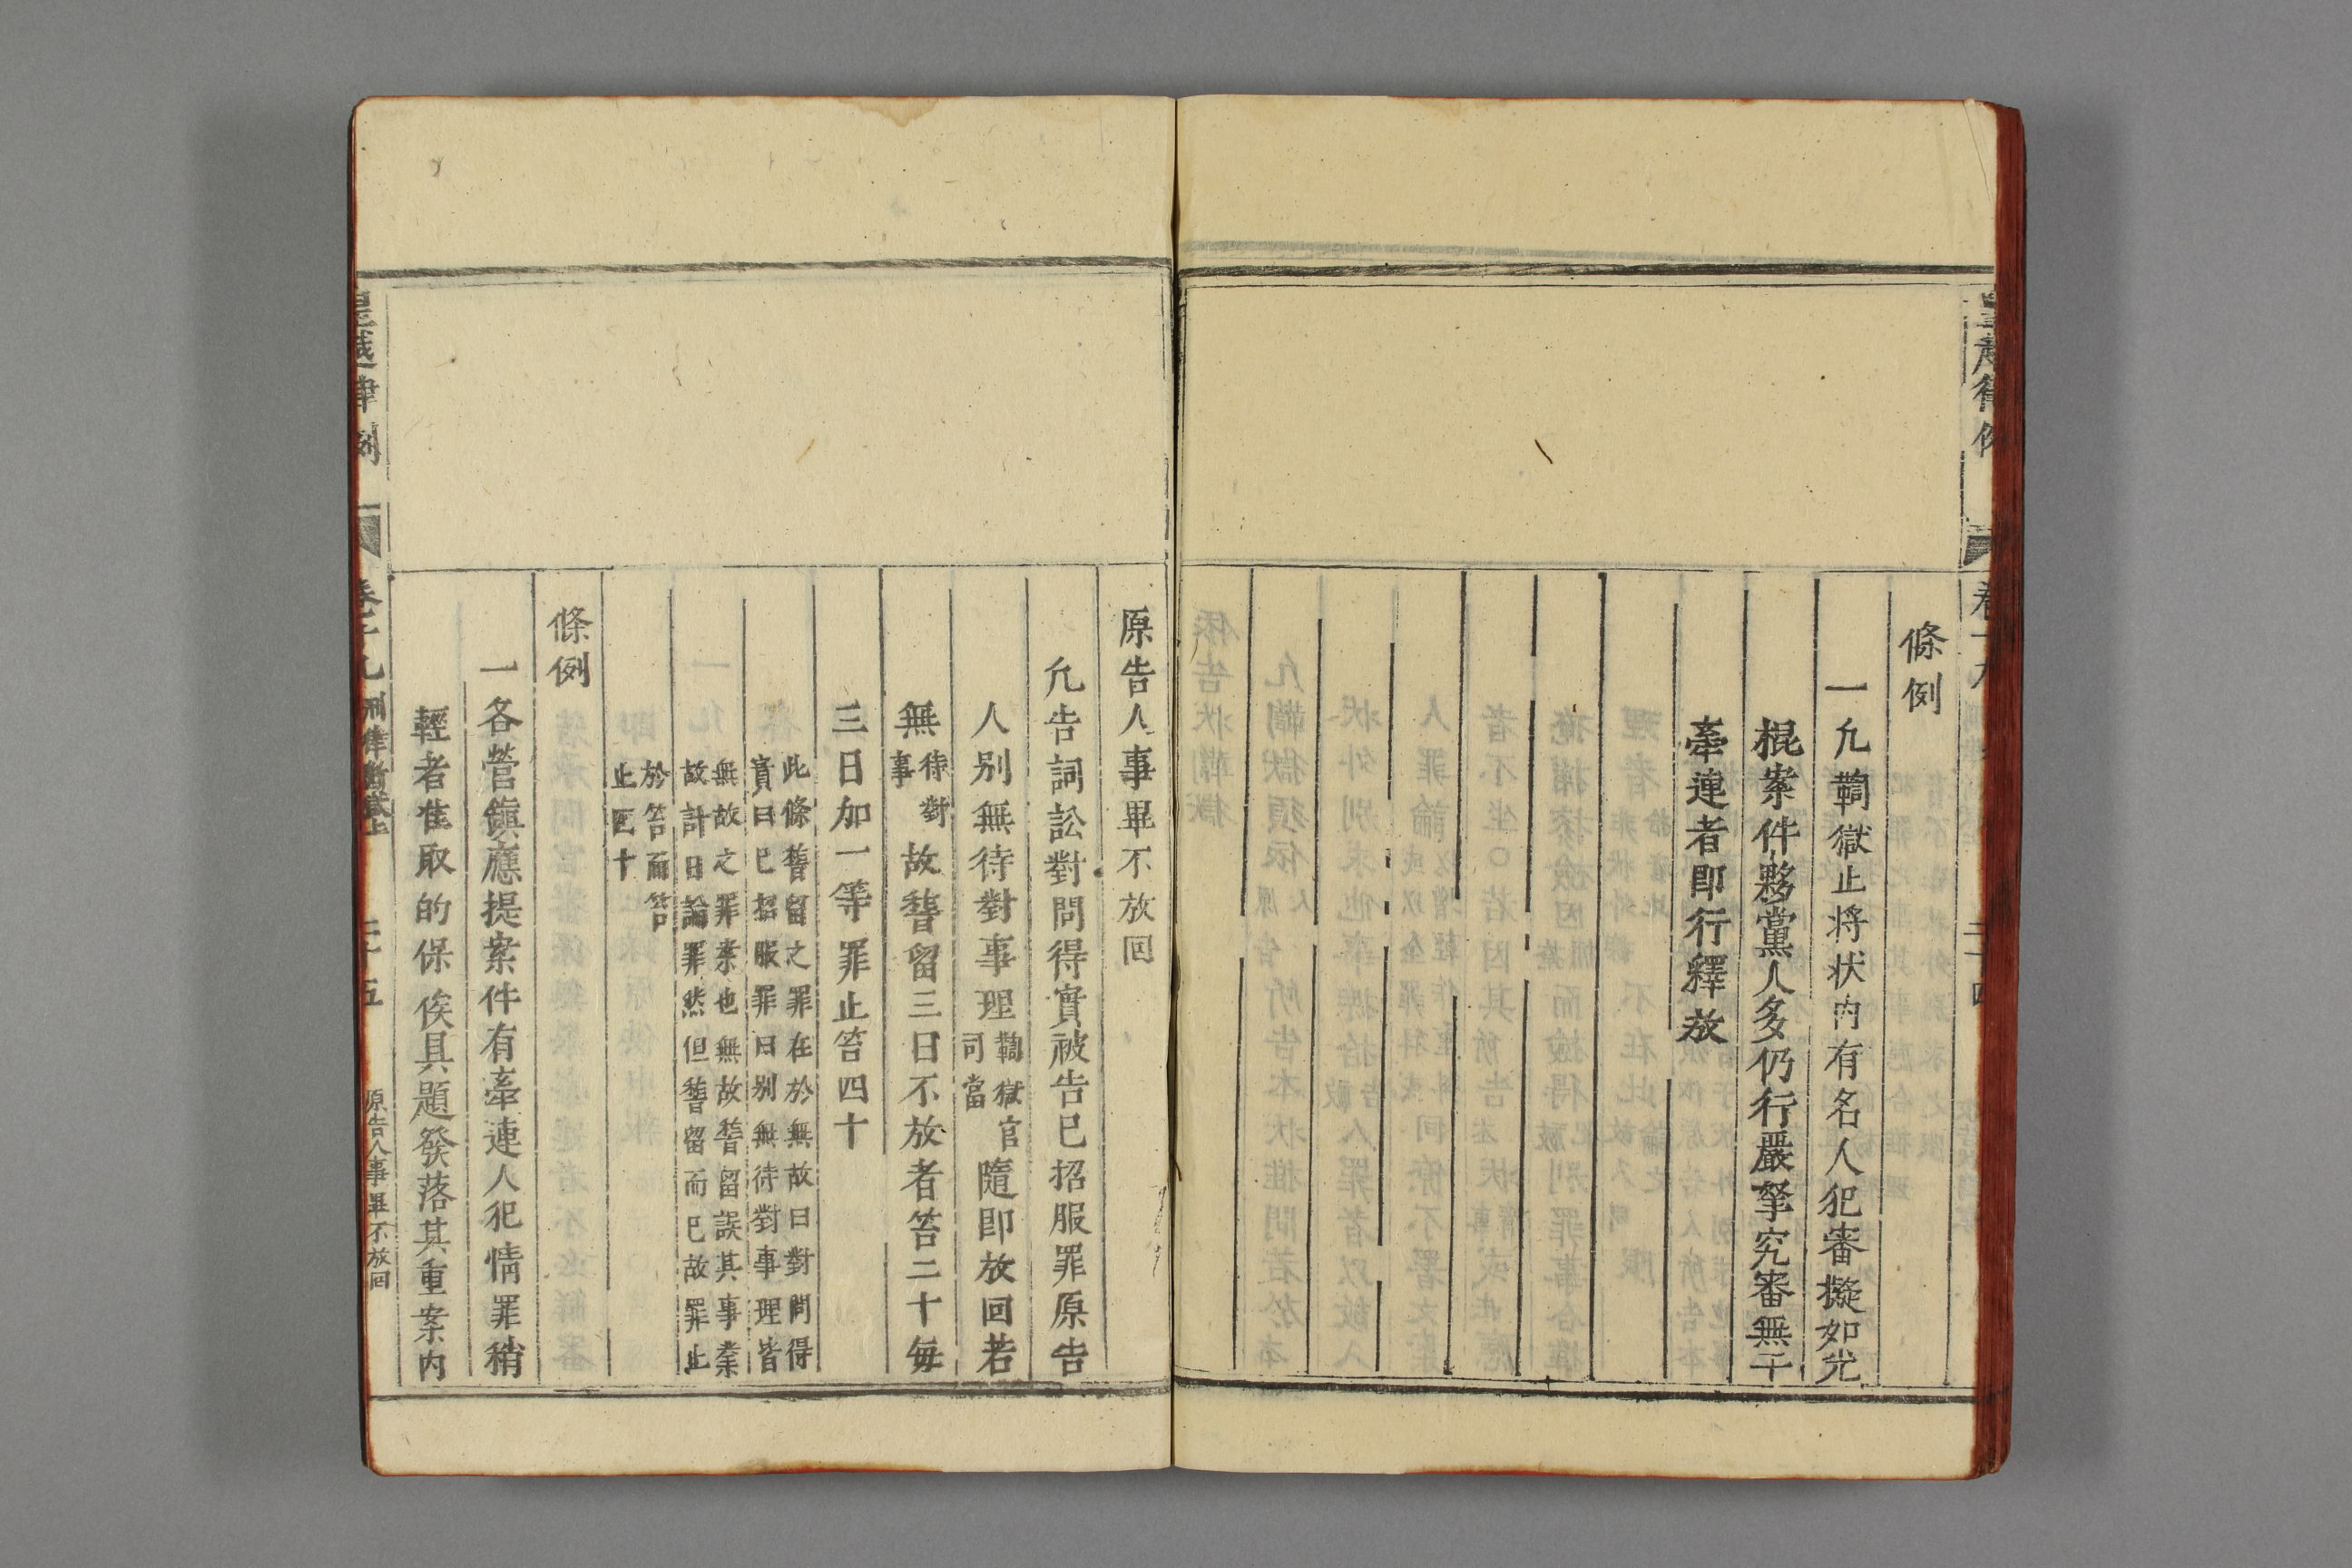 條例
一凢鞫獄止将状内有名人犯審擬如光
棍案件夥黨人多仍行嚴拏究審無干
牽連者即行釋放
原告人事畢不放回
凢告詞訟對問得實被告已招服罪原告
人别無待對事理鞫獄官司當隨即放回若
無待對事故𥡴留三日不放者笞二十每
三日加一等罪止笞四十
此條𥡴留之罪在於無故曰對問得
實曰已招服罪曰别無待對事理皆
無故之罪案也無故𥡴留誤其事業
故計日論罪然但𥡴留而已故罪止
於笞而笞
止四十
條例
一各營鎮應提案件有牽連人犯情罪稍
輕者准取的保俟具題發落其重案内
皇越律例
卷十九 刑律斷獄上
二十五
原告人事畢不放回